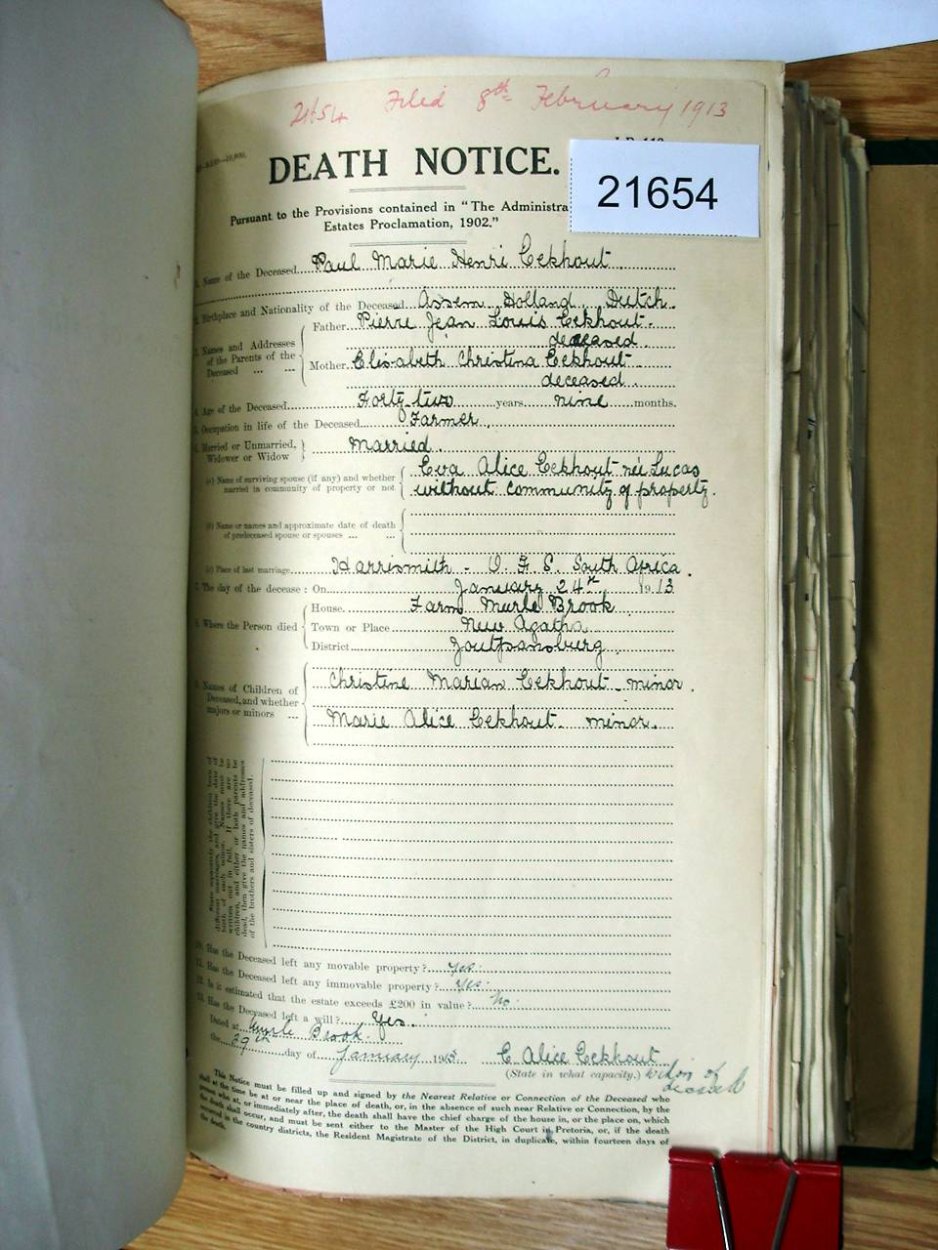 21654 Filed 8th February 1913
DEATH NOTICE.
21654
Pursuant to the Provisions contained in "The Administra
Estates Proclamation, 1902."
1. Name of the Deceased Paul Marie Henri Eckhout
2. Birthplace and Nationality of the Deceased Assem Holland Dutch.
3. Names and Addresses of the Parents of the Deceased
Father Pierre Jean Louis Eckhout.
deceased.
Mother Elisabeth Christina Eckhout
deceased.
4. Age of the Deceased Forty-two years nine months.
5. Occupation in life of the Deceased Farmer.
6. Married or Unmarried, Widower or Widow Married.
(a) Name of surviving spouse (if any) and whether married in community of property or not
Eva Alice Eckhout née Lucas
without community of property.
(b) Name or names and approximate date of death of predeceased spouse or spouses
(c) Place of last marriage Harrismith - O. F. S. South Africa.
7. The day of the decease: On January 24th 1913
8. Where the Person died
House Farm Murle Brook
Town or Place New Agatha
District Zoutpansburg.
9. Names of Children of Deceased, and whether majors or minors
Christine Marian Eckhout minor.
Marie Alice Eckhout. minor.
State separately the children born of
different marriages, and give the date of
birth of each minor. Names must be
written out in full. If there are no
children, and either or both parents be
dead, then give the names and addresses
of the brothers and sisters of deceased.
10. Has the Deceased left any movable property? Yes.
11. Has the Deceased left any immovable property? Yes.
12. Is it estimated that the estate exceeds £200 in value? No.
13. Has the Deceased left a will? Yes.
Dated at Murle Brook.
the 29th day of January 1913 E. Alice Eckhout
(State in what capacity.) widow of
deceased
This Notice must be filled up and signed by the Nearest Relative or Connection of the Deceased who
shall at the time be at or near the place of death, or, in the absence of such near Relative or Connection, by the
person who at, or immediately after, the death shall have the chief charge of the house in, or the place on, which
the death shall occur, and must be sent either to the Master of the High Court in Pretoria, or, if the death
occurred in the country districts, the Resident Magistrate of the District, in duplicate, within fourteen days of
the death.